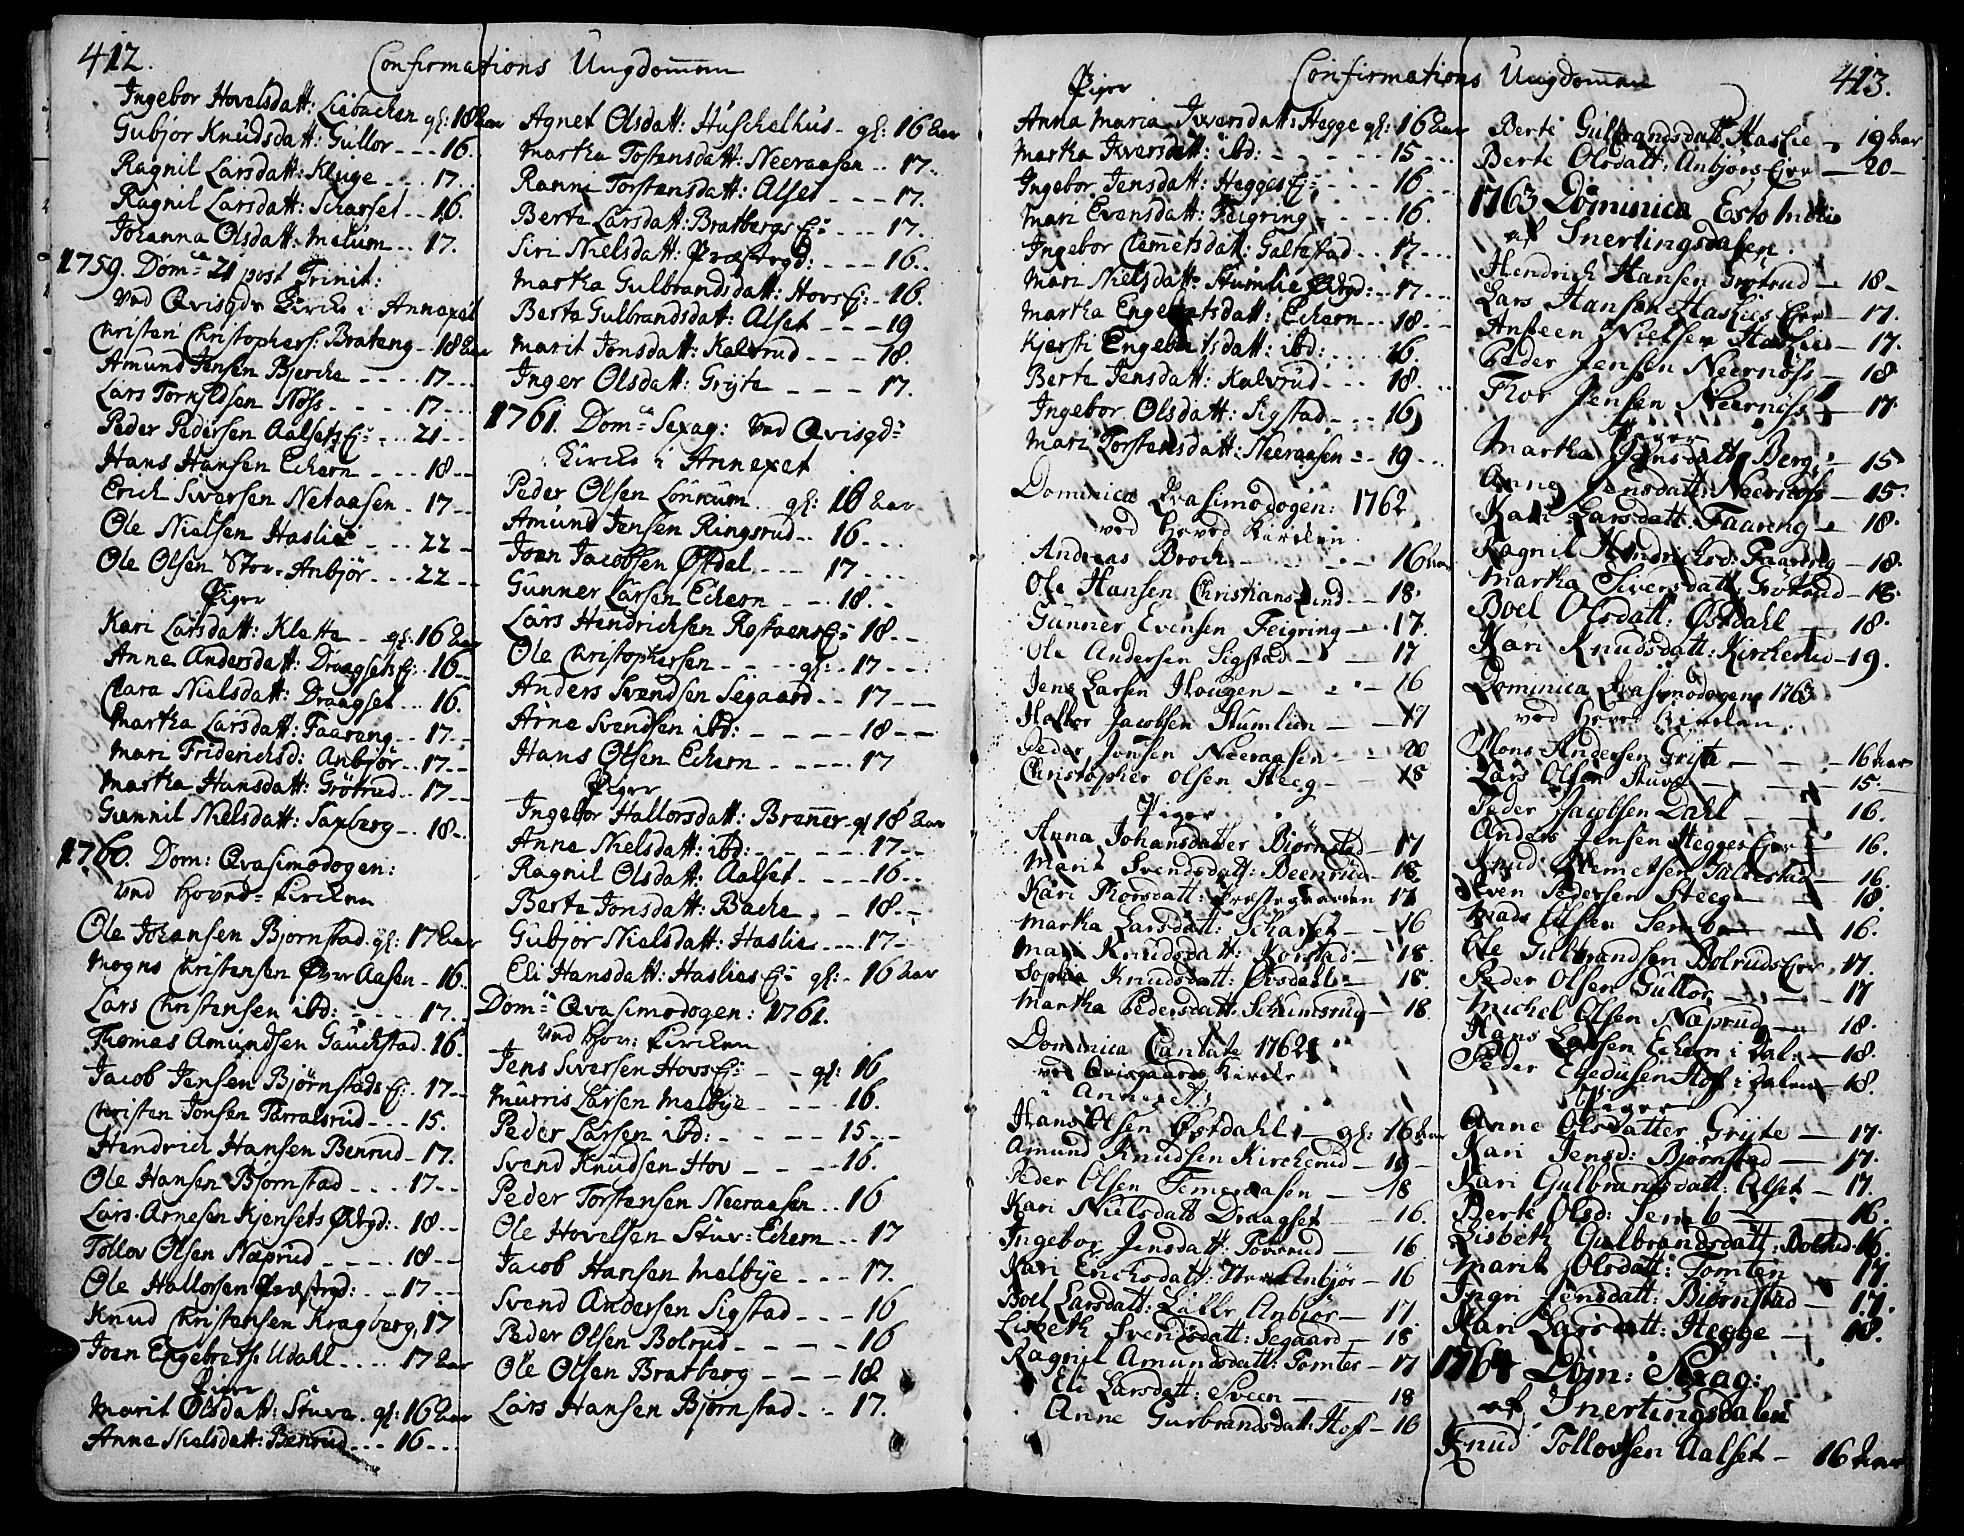 412.
Confirmations Ungdommen
Ingebor Hovelsdatt: Liebachen gl: 18 aar
Gubjor Knudsdatt: Gullor - - - 16.
Ragnil Larsdatt: Kluge - - - 17.
Ragnil Larsdatt: Scharset - - 16.
Johanna Olsdatt: Melum - - 17.
1759. Dom: 21 post Trinit:
Ved Qvisgds Kircke i Annexet
Christen Christophers: Brateng - 18 aar
Amund Jensen Bjercke - - - - 17 - -
Lars Tornildsen Nøss - - - - 17 - -
Peder Pedersen Aalsets Ej: - - 21 - -
Hans Hansen Echern - - - 18 - -
Erich Iversen Neraasen - 17 - -
Ole Nielsen Haslie - - - 22 -
Ole Olsen Stor-Anbjør - - - 22 - -
Piger
Kari Larsdatt: Klette - gl: 16 aar
Anne Andersdatt: Draagsets Ej: 16 - -
Clara Nielsdatt: Draagset - - 16.
Martha Larsdatt: Faarang - - 17 - -
Mari Friderichsd: Anbjør - - 17 - -
Martha Hansdatt: Grøtrud - - 17 - -
Gunnil Nielsdatt: Saxberg - - 18 - -
1760. Dom: Qvasimodogen:
Ved Hoved-Kircken
Ole Johansen Bjørnstad gl: 17 aar
Mogns Christensen Øver Aasen - 16.
Lars Christensen ibd: - - - - 17 - -
Thomas Amundsen Gauckstad - 16.
Jacob Jensen Bjørnstads Ej: - 17 - -
Christen Jonsen Tarralsrud - - - 15.
Hendrich Hansen Benrud - 17.
Ole Hansen Bjørnstad - - - 17 - -
Lars Arnesen Kjensets Ødgd: - 18 - -
Tollov Olsen Næprud - - - - 18 - -
Ole Hallorsen Præstgd: - - 17 - -
Knud Christensen Kragberg, 17
Joen Engebretss: Udahl - - - - 17 aar
Piger
Marit Olsdatt: Stuve. gl: 16 aar
Anne Nielsdatt: Benrud - - - 16 - - -
Agnet Olsdatt: Huschelhus - gl: 16 aar
Martha Tostensdatt: Neeraasen - - 17 -
Ranni Torstensdatt: Alset - - - 17.
Berte Larsdatt: Bratbergs Ej: - - - 17.
Siri Nielsdatt: Præstegd: - - - 16 - -
Martha Gulbrandsdatt: Hovs Ej: - 16.
Berta Gulbrandsdatt: Alset - - - 19
Marit Jonsdatt: Kalvrud - - - 18.
Inger Olsdatt: Grÿte - - - 17.
1761. Dom: Sexag: Ved Qvisgds
Kircke i Annexet
Peder Olsen Lønnum gl: 16 aar
Amund Jensen Ringsrud - - 16 - - -
Joen Jacobsen Østdal - - - 17 - - -
Gunner Larsen Echern - - - 18 - -
Lars Hendrichsen Rostaens Ej: 18 - -
Ole Christophersen - - - - gl: - 17 - - -
Anders Svendsen Segaard - - 17 - - -
Arne Svendsen ibd: - - - - - 18 - - -
Hans Olsen Echern - - - - - 17
Piger
Ingebor Hallorsdatt: Brenner gl 18 aar
Anne Nielsdatt: ibd: - - - - - 17 - -
Ragnil Olsdatt: Aalset - - - - 16 - -
Berte Jonsdatt: Backe - - - 18 - -
Gubjør Nielsdatt: Haslie - - - - 17 -
Eli Hansdatt: Haslies Ej: gl: - 16 aar
Dom: Qvasimodogen: 1761.
Ved Hov: Kircken
Jens Iversen Hovs Ej: - - gl: 16
Murris Larsen Melbye - - - - 16.
Peder Larsen ibd: - - - - - 15 - -
Svend Knudsen Hov - - - - 16.
Peder Torstensen Neeraasen - - 16
Ole Hovelsen Stuv: Echern - - 17
Jacob Hansen Melbÿe - - - 17.
Svend Andersen Sigstad - - - 16
Peder Olsen Bolrud - - - - - 16
Ole Olsen Bratberg - - - - 18
Lars Hansen Bjørnstad - - 17.
Confirmations Ungdommen
413.
Piger
Anna Maria Iversdatt: Hegge gl: 16 aar
Martha Iversdatt: ibd: - - - - - 15 - - -
Ingebor Jensdatt: Hegges Ej: - - - 16 - -
Mari Evensdatt: Feigring - - - - 16.
Ingebor Clemetsdatt: Galtestad - - 17 - - -
Mari Nielsdatt: Stumlie Ødgd: - - 17 - - -
Martha Engebretsdatt: Echern - - 18 - -
Kjersti Engebretsdatt: ibd: - - - 16.
Berte Jensdatt: Kalvrud - - - 18.
Ingebor Olsdatt: Sigstad - - - 16
Mari Torstensdatt: Neeraasen - - 19 - - -
Dominica Qvasimodogen: 1762
ved Hoved Kircken.
Andreas Broch - - - - - 16 aar
Ole Hansen Christianslund - - 18.
Gunner Evensen Feigring - - 17.
Ole Andersen Sigstad - - - 17
Jens Larsen Hougen - - - - 16
Halvor Jacobsen Stumlien - - 17
Peder Jonsen Neeraasen - - 20
Christopher Olsen Steeg - - 18
Piger
Anna Johansdatter Bjørnstad - 17
Marit Svendsdatt: Beenrud - 18
Kari Thorsdatt: Præstegaarden 17
Martha Larsdatt: Scharset - - 16
Mari Knudsdatt: Korstad - - 18.
Sophia Knudsdatt: Østdahl - - 18.
Martha Pedersdatt: Schumsrug - 18
Dominica Cantate 1762
ved Qvisgaards Kircke
i Annexet
Hans Olsen Østdahl - - gl: 16 aar
Amund Knudsen Kircherud - 19 -
Peder Olsen Femeraasen - 18
Kari Nielsdatt Draagset - - 16.
Ingebor Jensdatt: Povsrud - 16
Kari Erichsdatt: Stor Anbjør - 16
Boel Larsdatt: Lille Anbiør - 17.
Lisbeth Svendsdatt: Segaard - 18
Ragnil Amundsdatt: Tomter - 17
Eli Larsdatt: Sveen - - - 18
Anne Gulbrandsdatt: Hof - 16
Berte Gulbrandsdatt Haslie - 19 aar
Berte Olsdatt: Anbjørs Ejer - 20 -
1763 Dominica Esto Mihi
af Snertingsdalen.
Hendrich Hansen Grøtrud - 18 -
Lars Hansen Haslies Ejer - 17.
Anfeen Nielsen Haslie - 17.
Peder Jensen Neernøss - 18
Thor Jensen Neernøss - 17.
Piger
Martha Jensdatt: Berg - 15
Anne Jensdatt: Neernøss - 15.
Kari Larsdatt: Faareng - 18.
Ragnil Hendrichsd: Faareng - 18.
Martha Siversdatt: Grøtrud - 18.
Boel Olsdatt: Østdahl - 18.
Kari Knudsdatt: Kircherud - 19.
Dominica Qvasimodogen: 1763
ved Hoved Kircken.
Mons Andersen Grÿte - - - 16 aar
Lars Olsen Stuve - - - 15.
Peder Jacobsen Dahl - - 16.
Anders Jensen Hegges Ejer - 16.
Knud Klemetsen Galtestad - 16.
Sven Pedersen Steeg - - 18.
Mads Olsen Semb - - 16.
Ole Gulbrandsen Bolruds Ejer - 17.
Peder Olsen Gullor - - - 17
Michel Olsen Næprud - - 18.
Hans Larsen Echern i Dal: - 18.
Peder Egedusen Hof i Dalen - 18.
Piger
Anne Olsdatter Grÿte - 17.
Kari Jensd: Bjørnstad - 17.
Kari Gulbrandsdatt: Alset - 17.
Berte Olsd: Semb - - 16.
Lisbeth Gulbrandsdatt: Bolrud 16.
Marit Olsdatt: Tomten - 17.
Ingri Jensdatt: Bjørnstad - 17.
Kari Larsdatt: Hegge - 18.
1764 Dom: Sexag:
af Snertingsdalen
Knud Tollovsen Aalset - 16 aar